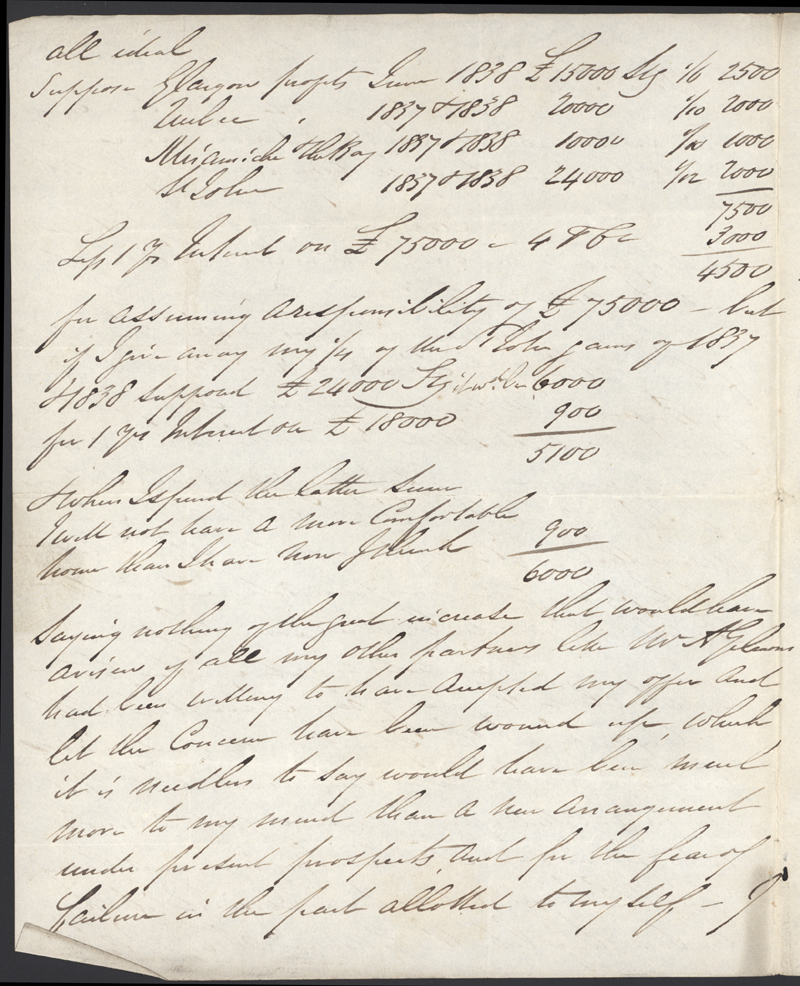 all ideal
Suppose Glasgow profits June 1838 £15000 Stg 1/6 2500
Quebec " 1837 & 1838 20000 1/10 2000
Miramichi & the Bay 1837 & 1838 10000 1/10 1000
St John 1837 & 1838 24000 1/12 2000
7500
Less 1 Yrs Interest on £75000 - 4 P Ct 3000
4500
for assuming a responsibility of £75000 - but
if I give away my ¼ of the St John gains of 1837
& 1838 suppose £24000 Stg it wd be 6000
for 1 Yrs Interest on £18000 900
5100
& when I spend the latter sum
I will not have a more Comfortable
home than I have now I think 900
6000
Saying nothing of the great increase that would have
arisen if all my other partners like Mr A Gilmour
had been willing to have accepted my offer and
let the Concern have been wound up, which
it is needless to say would have been much
more to my mind than a new arrangement
under present prospects, and for the fear of
failure in the part allotted to myself - I